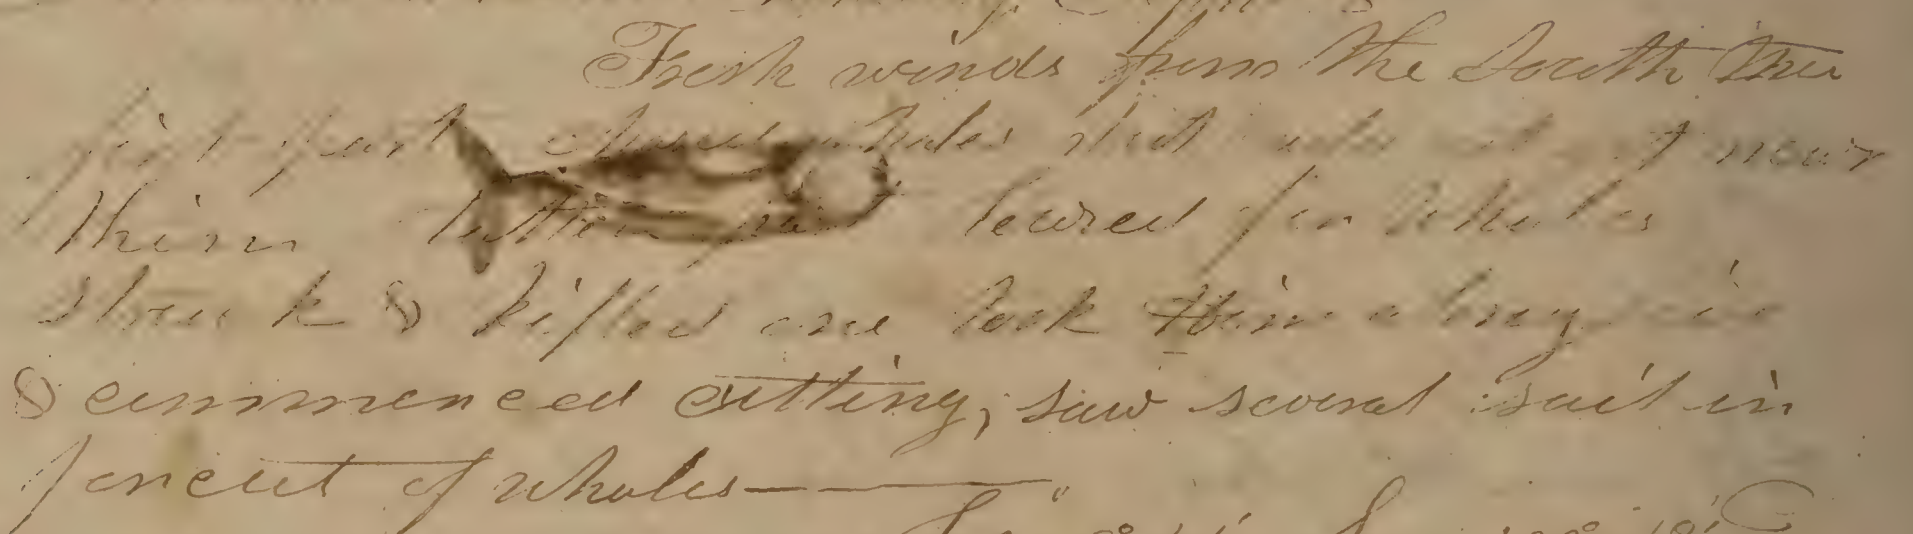 Fresh winds from the South the
first part chased whales but could not get near
them latter part lowred for whales
struck & killed one took him along sid
& commenced cutting, saw several sail in
persuit of whales